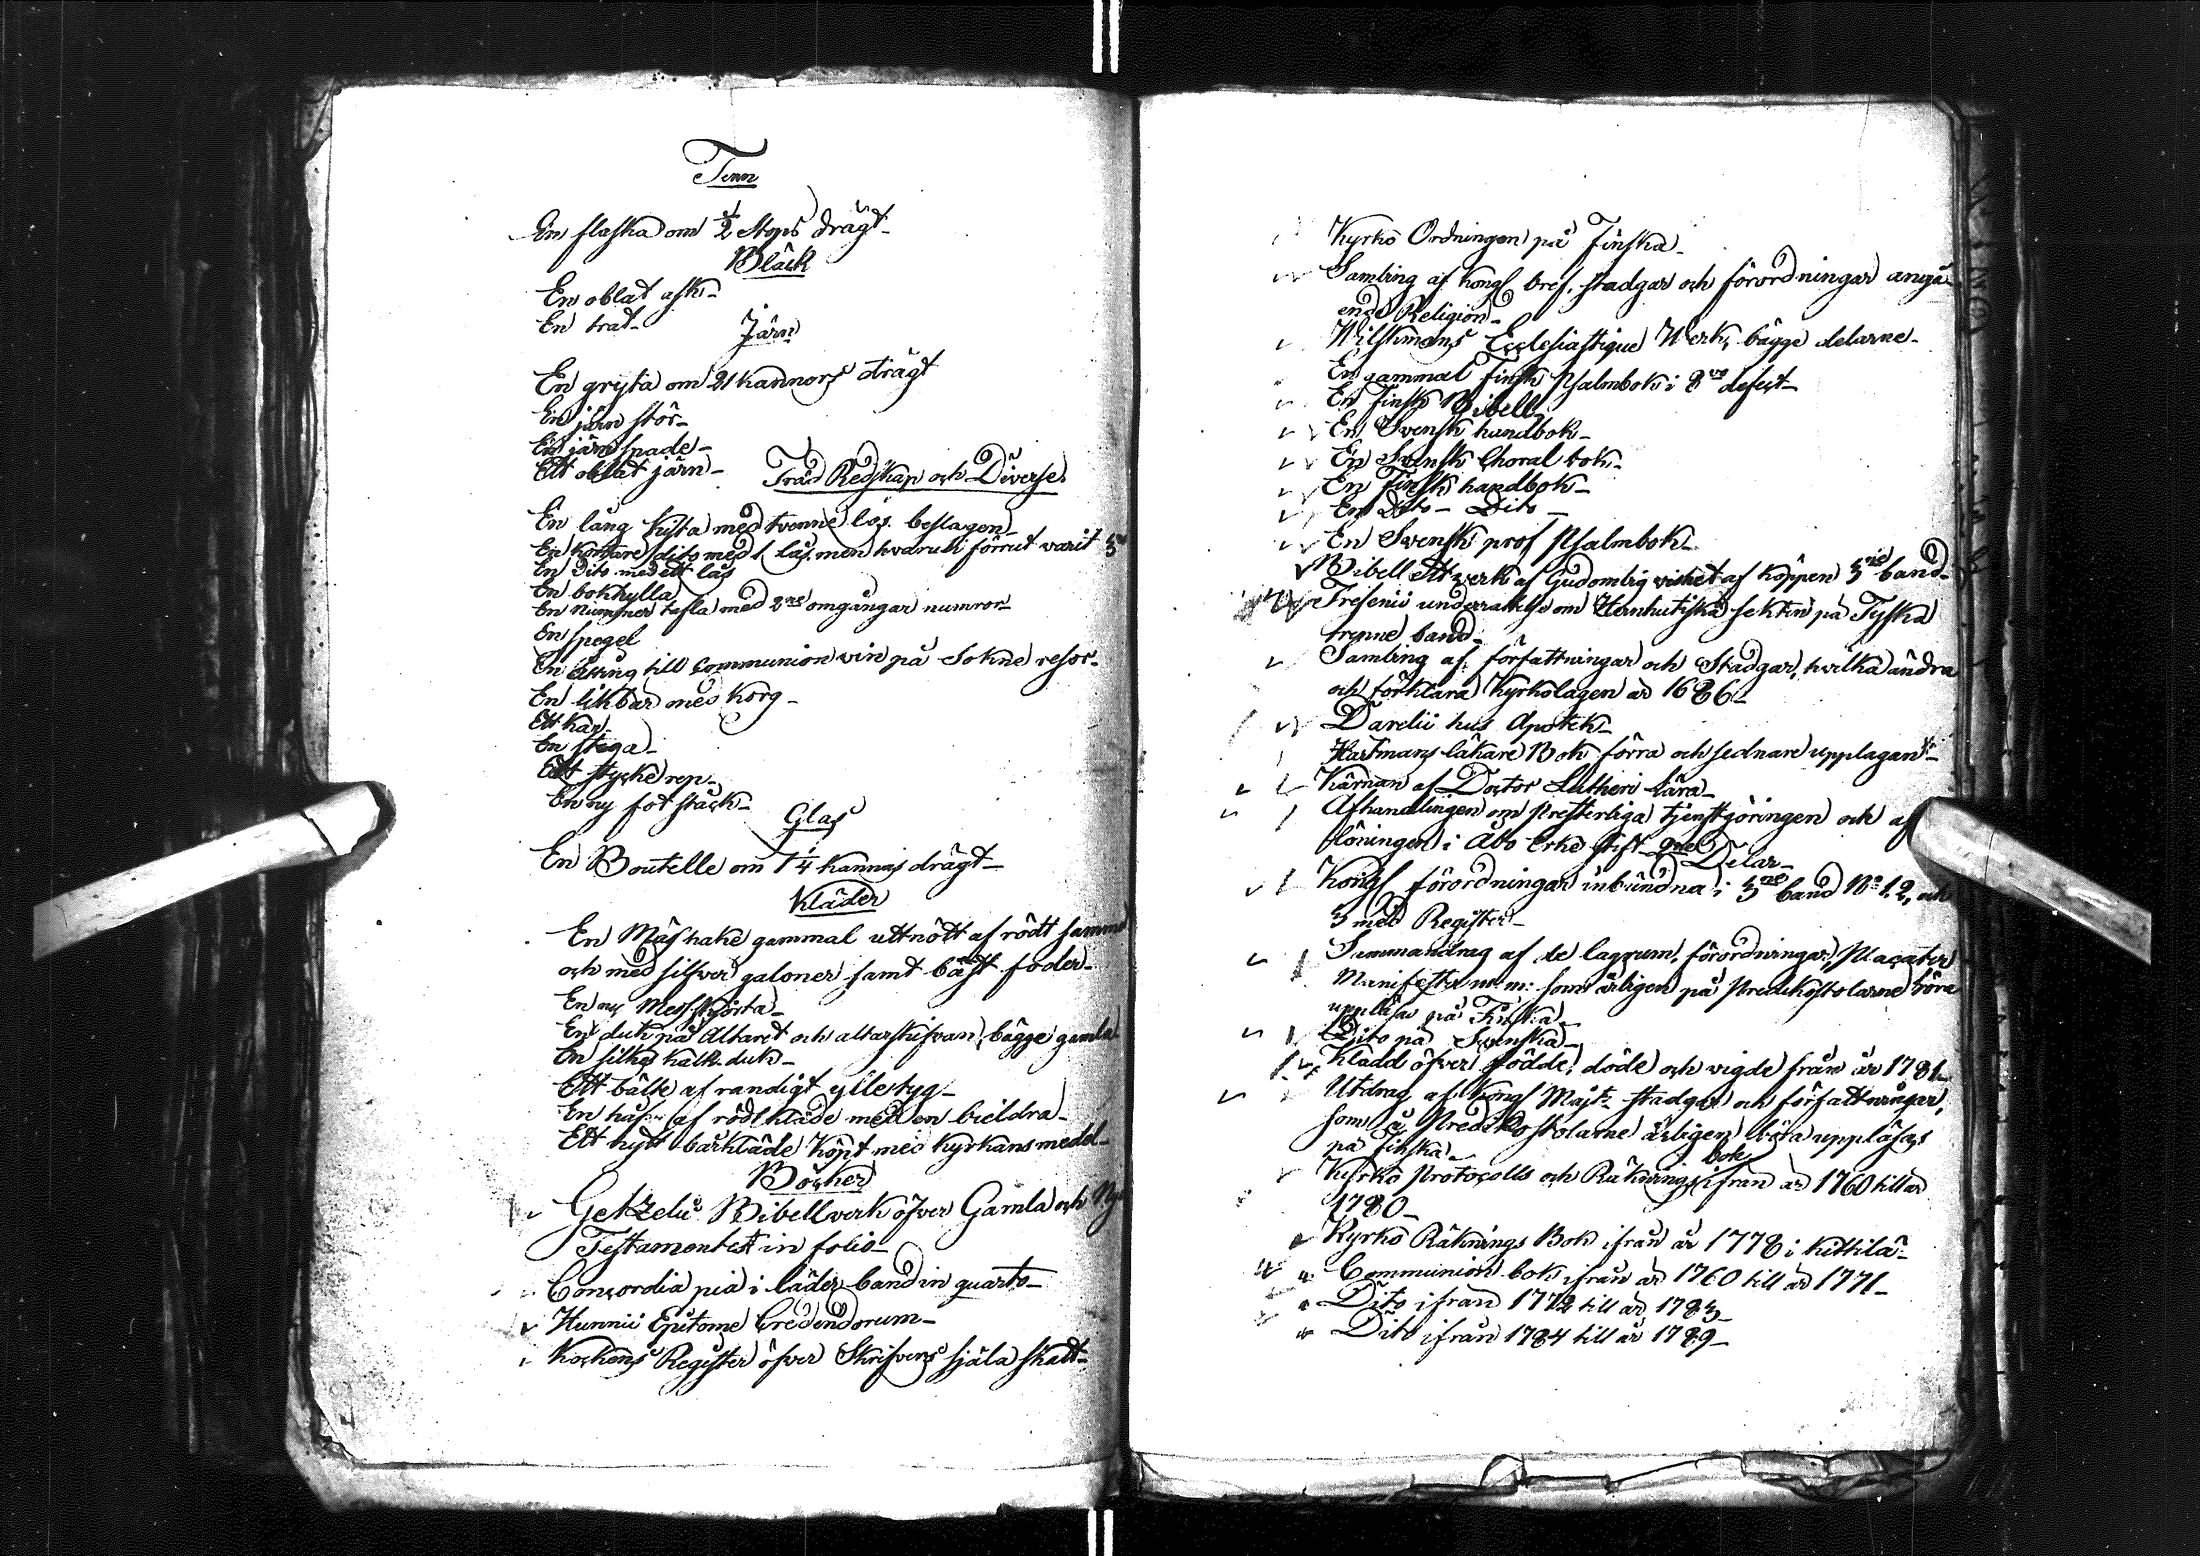 Tenn
En flaska om 1/2 Stops drägt
Bläck
En oblat ask
En trat
Järn
En gryta om 21 kannors drägt
En järn stör
En järn spade
Ett oblat järn
Träd Redskap och Diverse
En lång kista med tvenne lås beslagen
En kortare dito med 1 lås, men hvaruti förrut varit 3ne
En Dito med ett lås
En bokhylla
En Nummer tafla med 2ne omgångar numror
En spegel
En till Communion vin på Sokne resor
En likbår med korg
Ett kar
En stega
Ett stycke rep
En ny fot stäck
Glas
En Boutelle om 1 1/4 kannas drägt
Kläder
En Mäshake gammal uttnött af rödt samme
och med silfver galoner samt bäst foder
En ny Messskjorta
En duk på Altaret och altarskifvan, bägge gamla
En silkes kalk duk
Ett bälte af randigt ylletyg
En håf af rödt kläde med en bieldra
Ett nytt bårkläde köpt med kyrkans medel
Böcker
Getzelii Bibellverk öfver Gamla och Ny
Testamentet in folio
Concordia pia i läder band in quarto
Hunnii Epitome Credendorum
Kockens Register öfver Skrifvens själa skatt
Kyrko Ordningen på Finska
Samling af Kongl bref, stadgar och förordningar angå
ende Religion
Wilskmans Ecclesiastique Werk, bägge delarne
En gammal Finsk Psalmbok i 8vo defect
En Finsk Bibell
En Svensk handbok
En Svensk Choral bok
En Finsk handbok
En Dito Dito
En Svensk prof Psalmbok
Bibell Ett verk af Gudomlig vishet af Köppen 3ne band
Fresenii underrattelse om Hernhutiska sekten på Tyska
trenne band
Samling af författningar och Stadgar, hvilka ändra
och förklara Kyrkolagen år 1686
Darelii hus Apotek
Hartmans läkare Bok förra och sednare upplagan
Kärnan af Doctor Lutheri lära
Afhandlingen om Presterliga tjenstgöringen och af
löningen i Åbo Erke stift 2ne Delar
Kongl förordningar inbundna i 3ne band No 1, 2, och
3 med Register
Summandrag af de lagrum, förordningar, Placater
Manifester m: m: som årligen på Predikostolarne böra
uppläsas på Finska
Dito på Svenska
Kladd öfver födde, döde och vigde från år 1781
Utdrag af Kongl Majts stadgar och författningar,
som å Predikostolarne årligen böra uppläsas
på finska
Kyrko Protocolls och Räknings bok ifrån år 1760 till år
1780
Kyrko Räknings Bok ifrån år 1778 i Kittilä
Communion bok ifrån år 1760 till år 1771
Dito ifrån 1772 till år 1783
Dito ifrån 1784 till år 1789